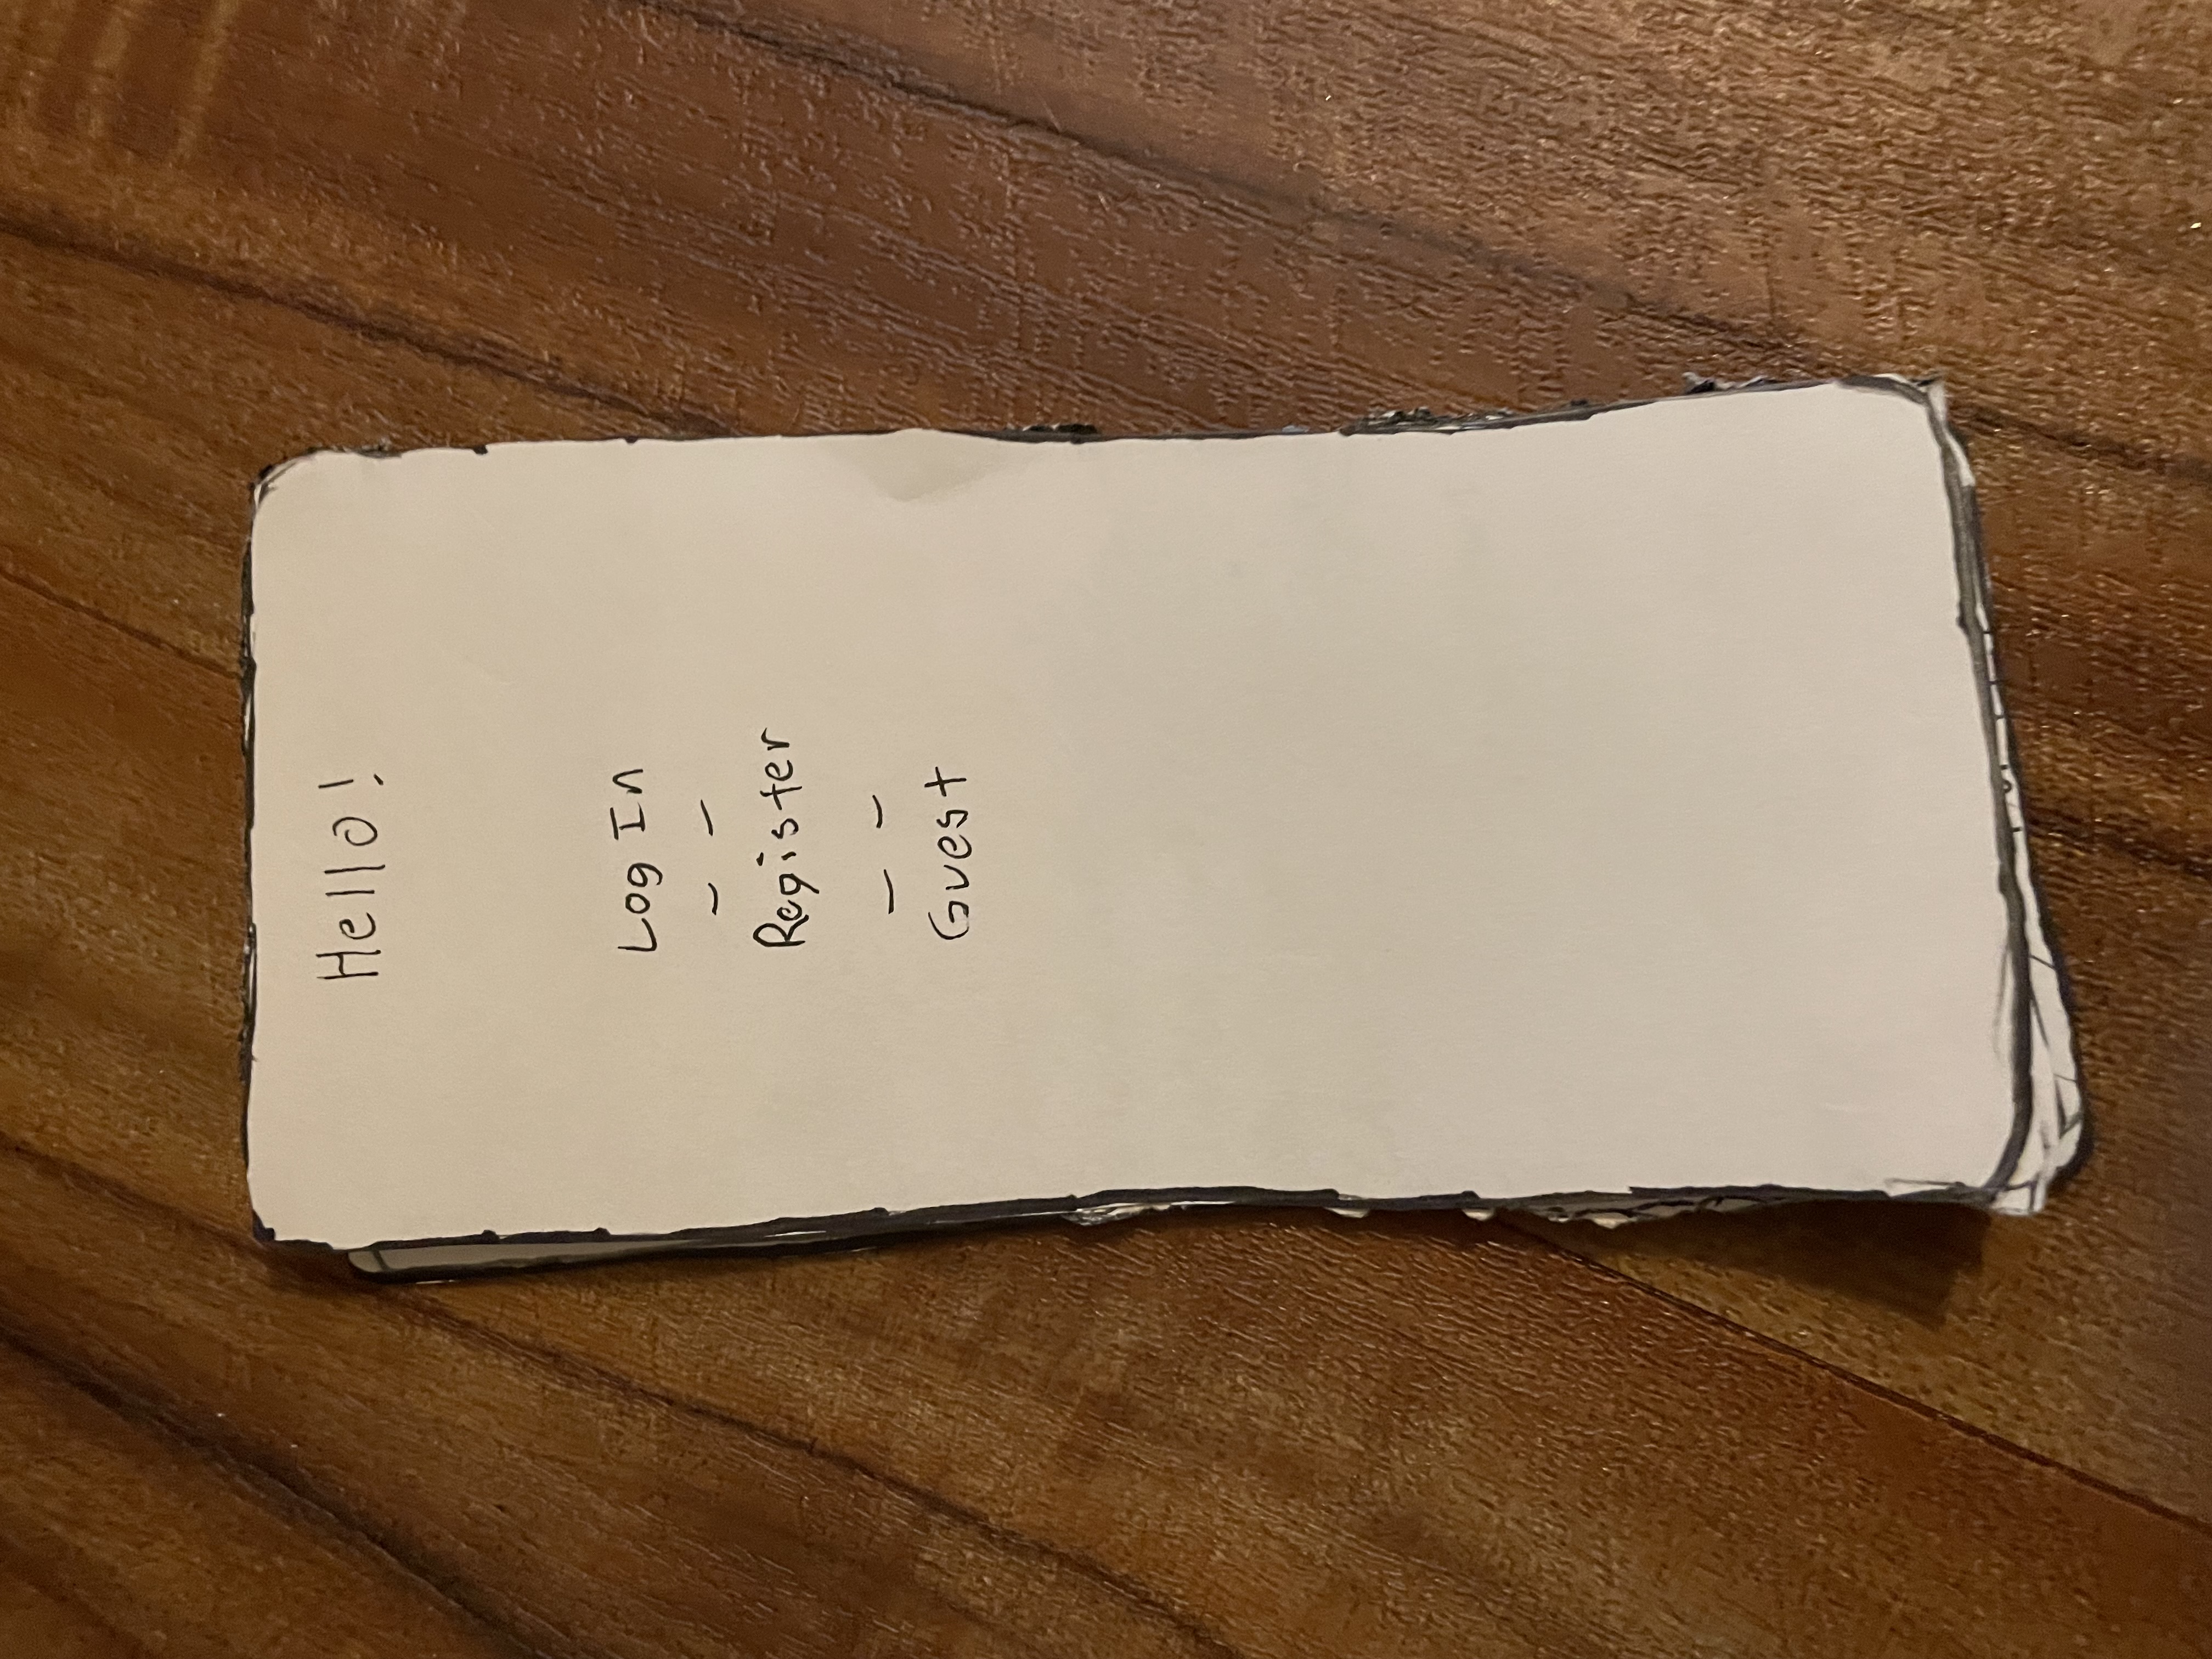 Hello!
Log In
- -
Register
- -
Guest